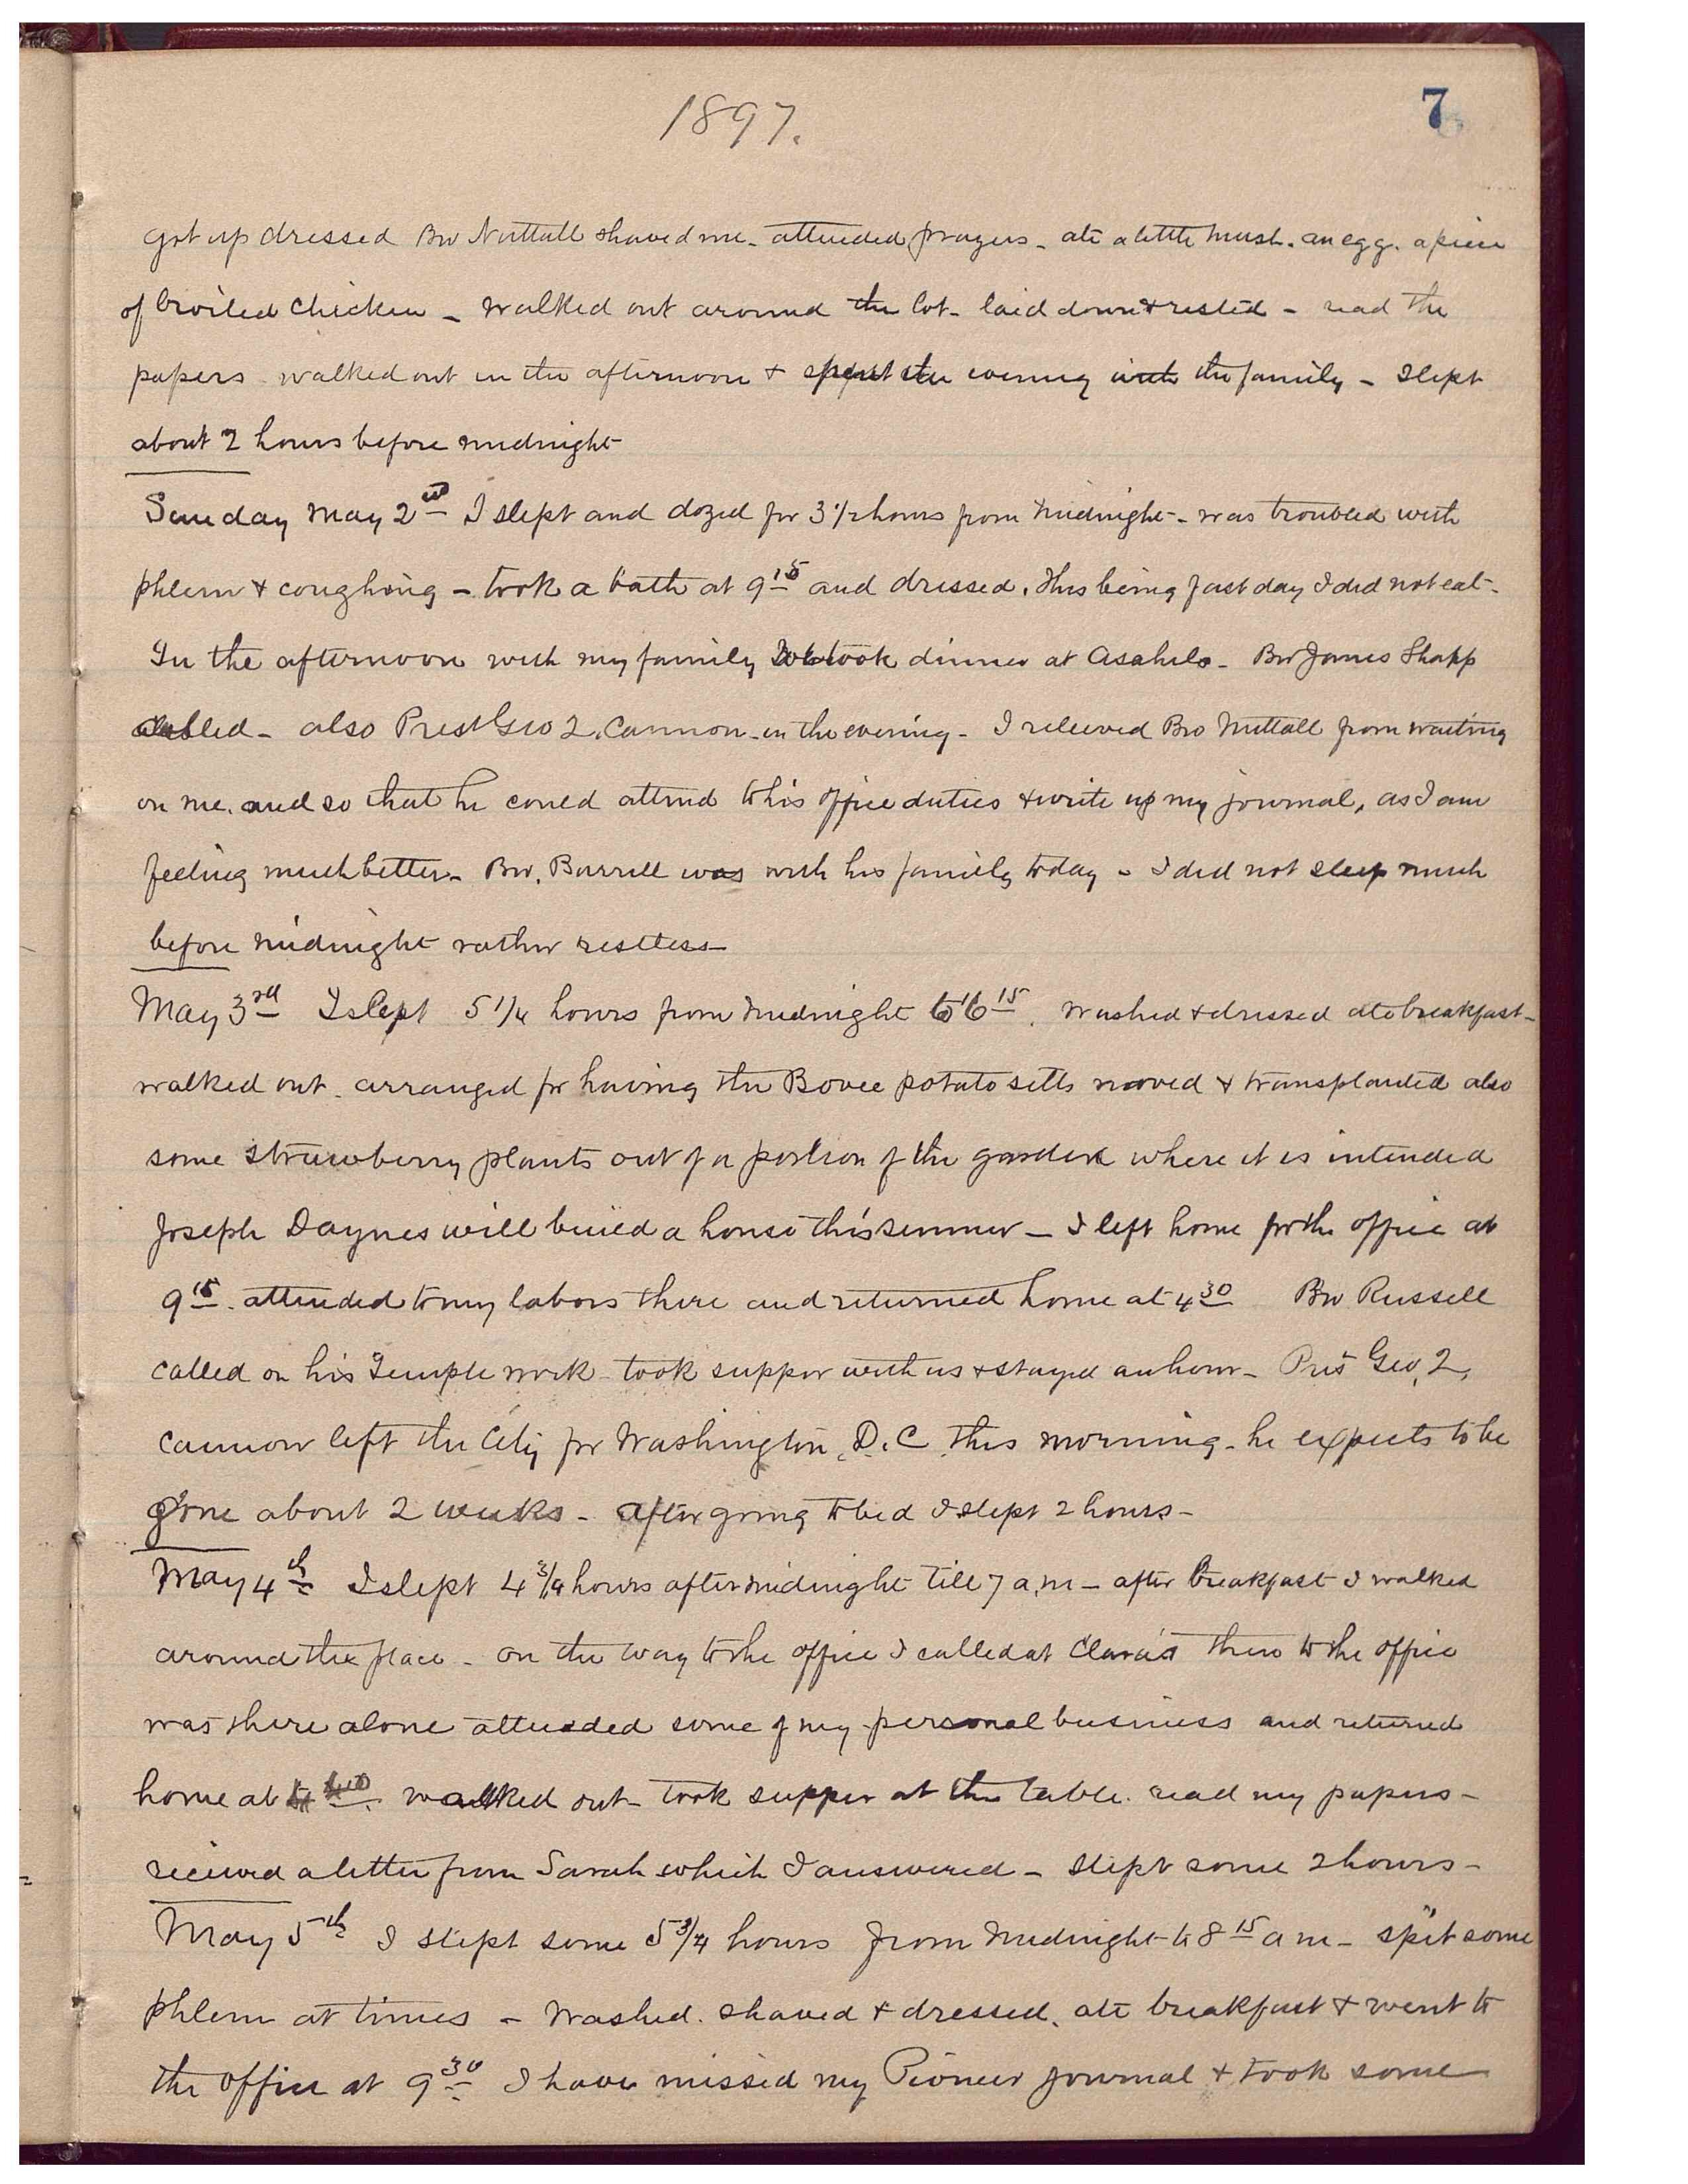 1897.
7
got up dressed Bro Nuttall shaved me - attended prayers - ate a little mush. an egg. a piece
of broiled chicken - walked out around the lot - laid down & rested - read the
papers walked out in the afternoon & spent the evening with the family - slept
about 2 hours before midnight
Sunday May 2nd I slept and dozed for 3 1/2 hours from midnight - was troubled with
phlem & coughing - took a bath at 9 15 and dressed. This being fast day I did not eat -
In the afternoon with my family We took dinner at Asahels - Bro James Sharp
called - also Prest Geo 2. Cannon - in the evening - I relieved Bro Nuttall from waiting
on me. and so that he could attend to his office duties & write up my journal, as I am
feeling much better - Bro. Burrell was with his family today - I did not sleep much
before midnight rather restless -
May 3rd I slept 5 1/4 hours from midnight to 6 15. washed & dressed ate breakfast -
walked out - arranged for having the Bovee potato setts moved & transplanted also
some strawberry plants out of a portion of the garden where it is intended
Joseph Daynes will build a house this summer - I left home for the office at
9 15. attended to my labors there and returned home at 4 30 Bro Russell
called on his Temple work - took supper with us & stayed an hour - Pres Geo, 2,
Cannon left the City for Washington, D. C. this morning - he expects to be
gone about 2 weeks - after going to bed I slept 2 hours -
May 4th I slept 4 3/4 hours after midnight till 7 a.m - after breakfast I walked
around the place - on the way to the office I called at Clara's then to the office
was there alone attended some of my personal business and returned
home at walked out - took supper at the table. read my papers -
recieved a letter from Sarah which I answered - slept some 2 hours -
May 5th I slept some 5 3/4 hours from midnight to 8 15 a m - spit some
phlem at times - washed. shaved & dressed. ate breakfast & went to
the office at 9 30 I have missed my Pioneer Journal & took some